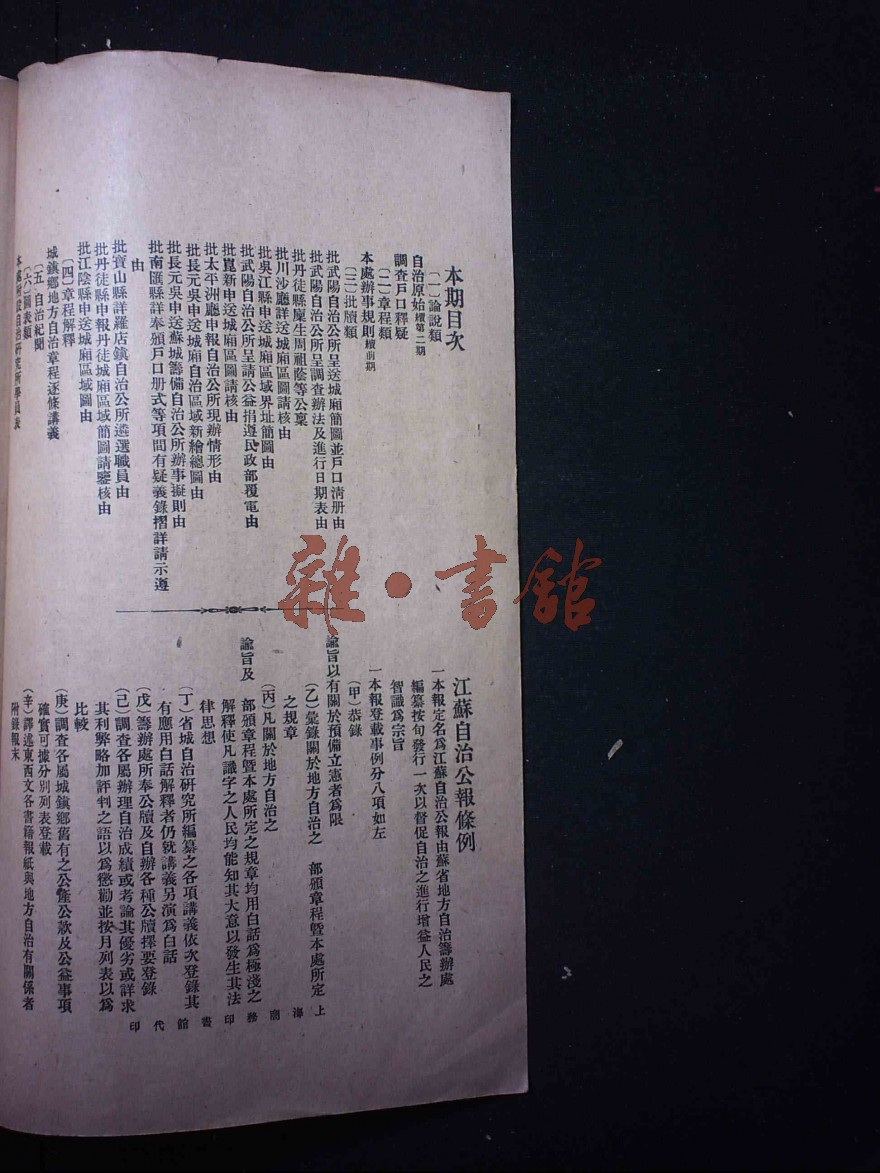 本期目次
(一)論說類
自治原始續第二期
調查戶口釋疑
(二)章程類
本處辦事規則續前期
(三)批牘類
批武陽自治公所呈送城廂簡圖並戶口清册由
批武陽自治公所呈調查辦法及進行日期表由
批丹徒縣廩生周祖蔭等公稟
批川沙廳詳送城廂區圖請核由
批吳江縣申送城廂區域界址簡圖由
批武陽自治公所呈請公益捐遵民政部覆電由
批崑新申送城廂區圖請核由
批太平洲廳申報自治公所現辦情形由
批長元吳申送城廂自治區域新繪總圖由
批長元吳申送蘇城籌備自治公所辦事擬則由
批南匯縣詳奉頒戶口册式等項間有疑義錄摺詳請示遵
由
批寶山縣詳羅店鎮自治公所遴選職員由
批丹徒縣申報丹徒城廂區域簡圖請鑒核由
批江陰縣申送城廂區域圖由
(四)章程解釋
城鎮鄉地方自治章程逐條講義
(五)自治紀聞
(六)圖表類
本處附設自治研究所學員表
江蘇自治公報條例
一本報定名爲江蘇自治公報由蘇省地方自治籌辦處
編纂按旬發行一次以督促自治之進行增益人民之
智識爲宗旨
一本報登載事例分八項如左
(甲)恭錄
諭旨以有關於預備立憲者爲限
(乙)彙錄關於地方自治之 部頒章程暨本處所定
之規章
(丙)凡關於地方自治之
諭旨及 部頒章程暨本處所定之規章均用白話爲極淺之
解釋使凡識字之人民均能知其大意以發生其法
律思想
(丁)省城自治研究所編纂之各項講義依次登錄其
有應用白話解釋者仍就講義另演爲白話
(戊)籌辦處所奉公牘及自辦各種公牘擇要登錄
(己)調查各屬辦理自治成績或考論其優劣或詳求
其利弊略加評判之語以爲懲勸並按月列表以爲
比較
(庚)調查各屬城鎮鄉舊有之公產公款及公益事項
確實可據分別列表登載
(辛)譯述東西文各書籍報紙與地方自治有關係者
附錄報末
上海商務印書館代印
雜·書館